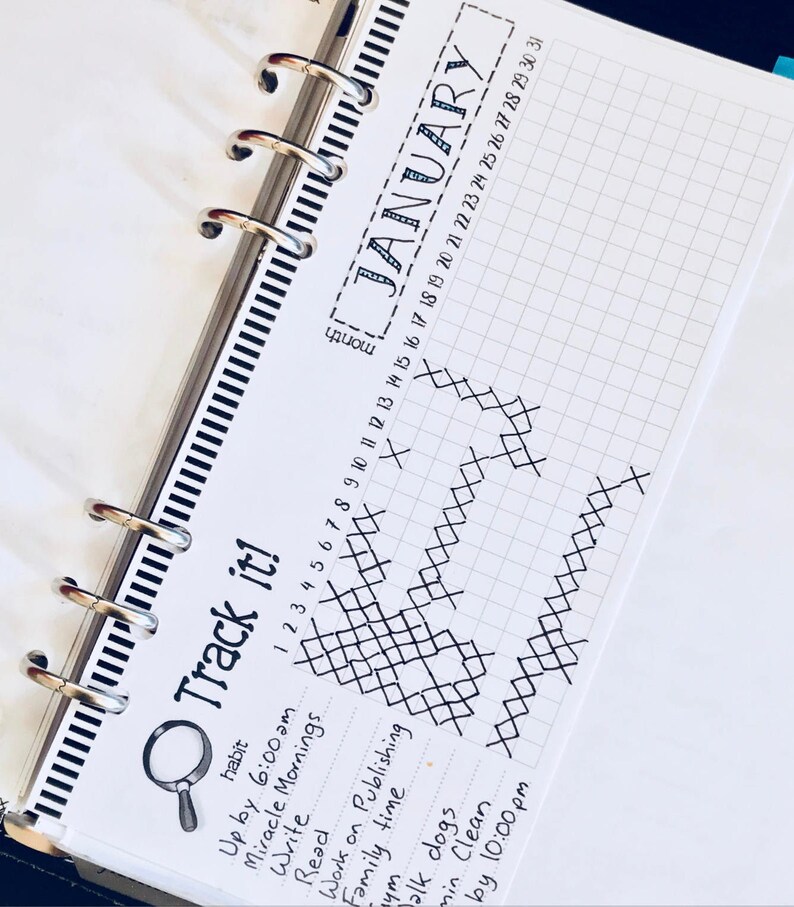 month
JANUARY
Track it!
habit
1 2 3 4 5 6 7 8 9 10 11 12 13 14 15 16 17 18 19 20 21 22 23 24 25 26 27 28 29 30 31
Up by 6:00am
Miracle Mornings
Write
Read
Work on Publishing
Family time
ym
alk dogs
min Clean
by 10:00pm